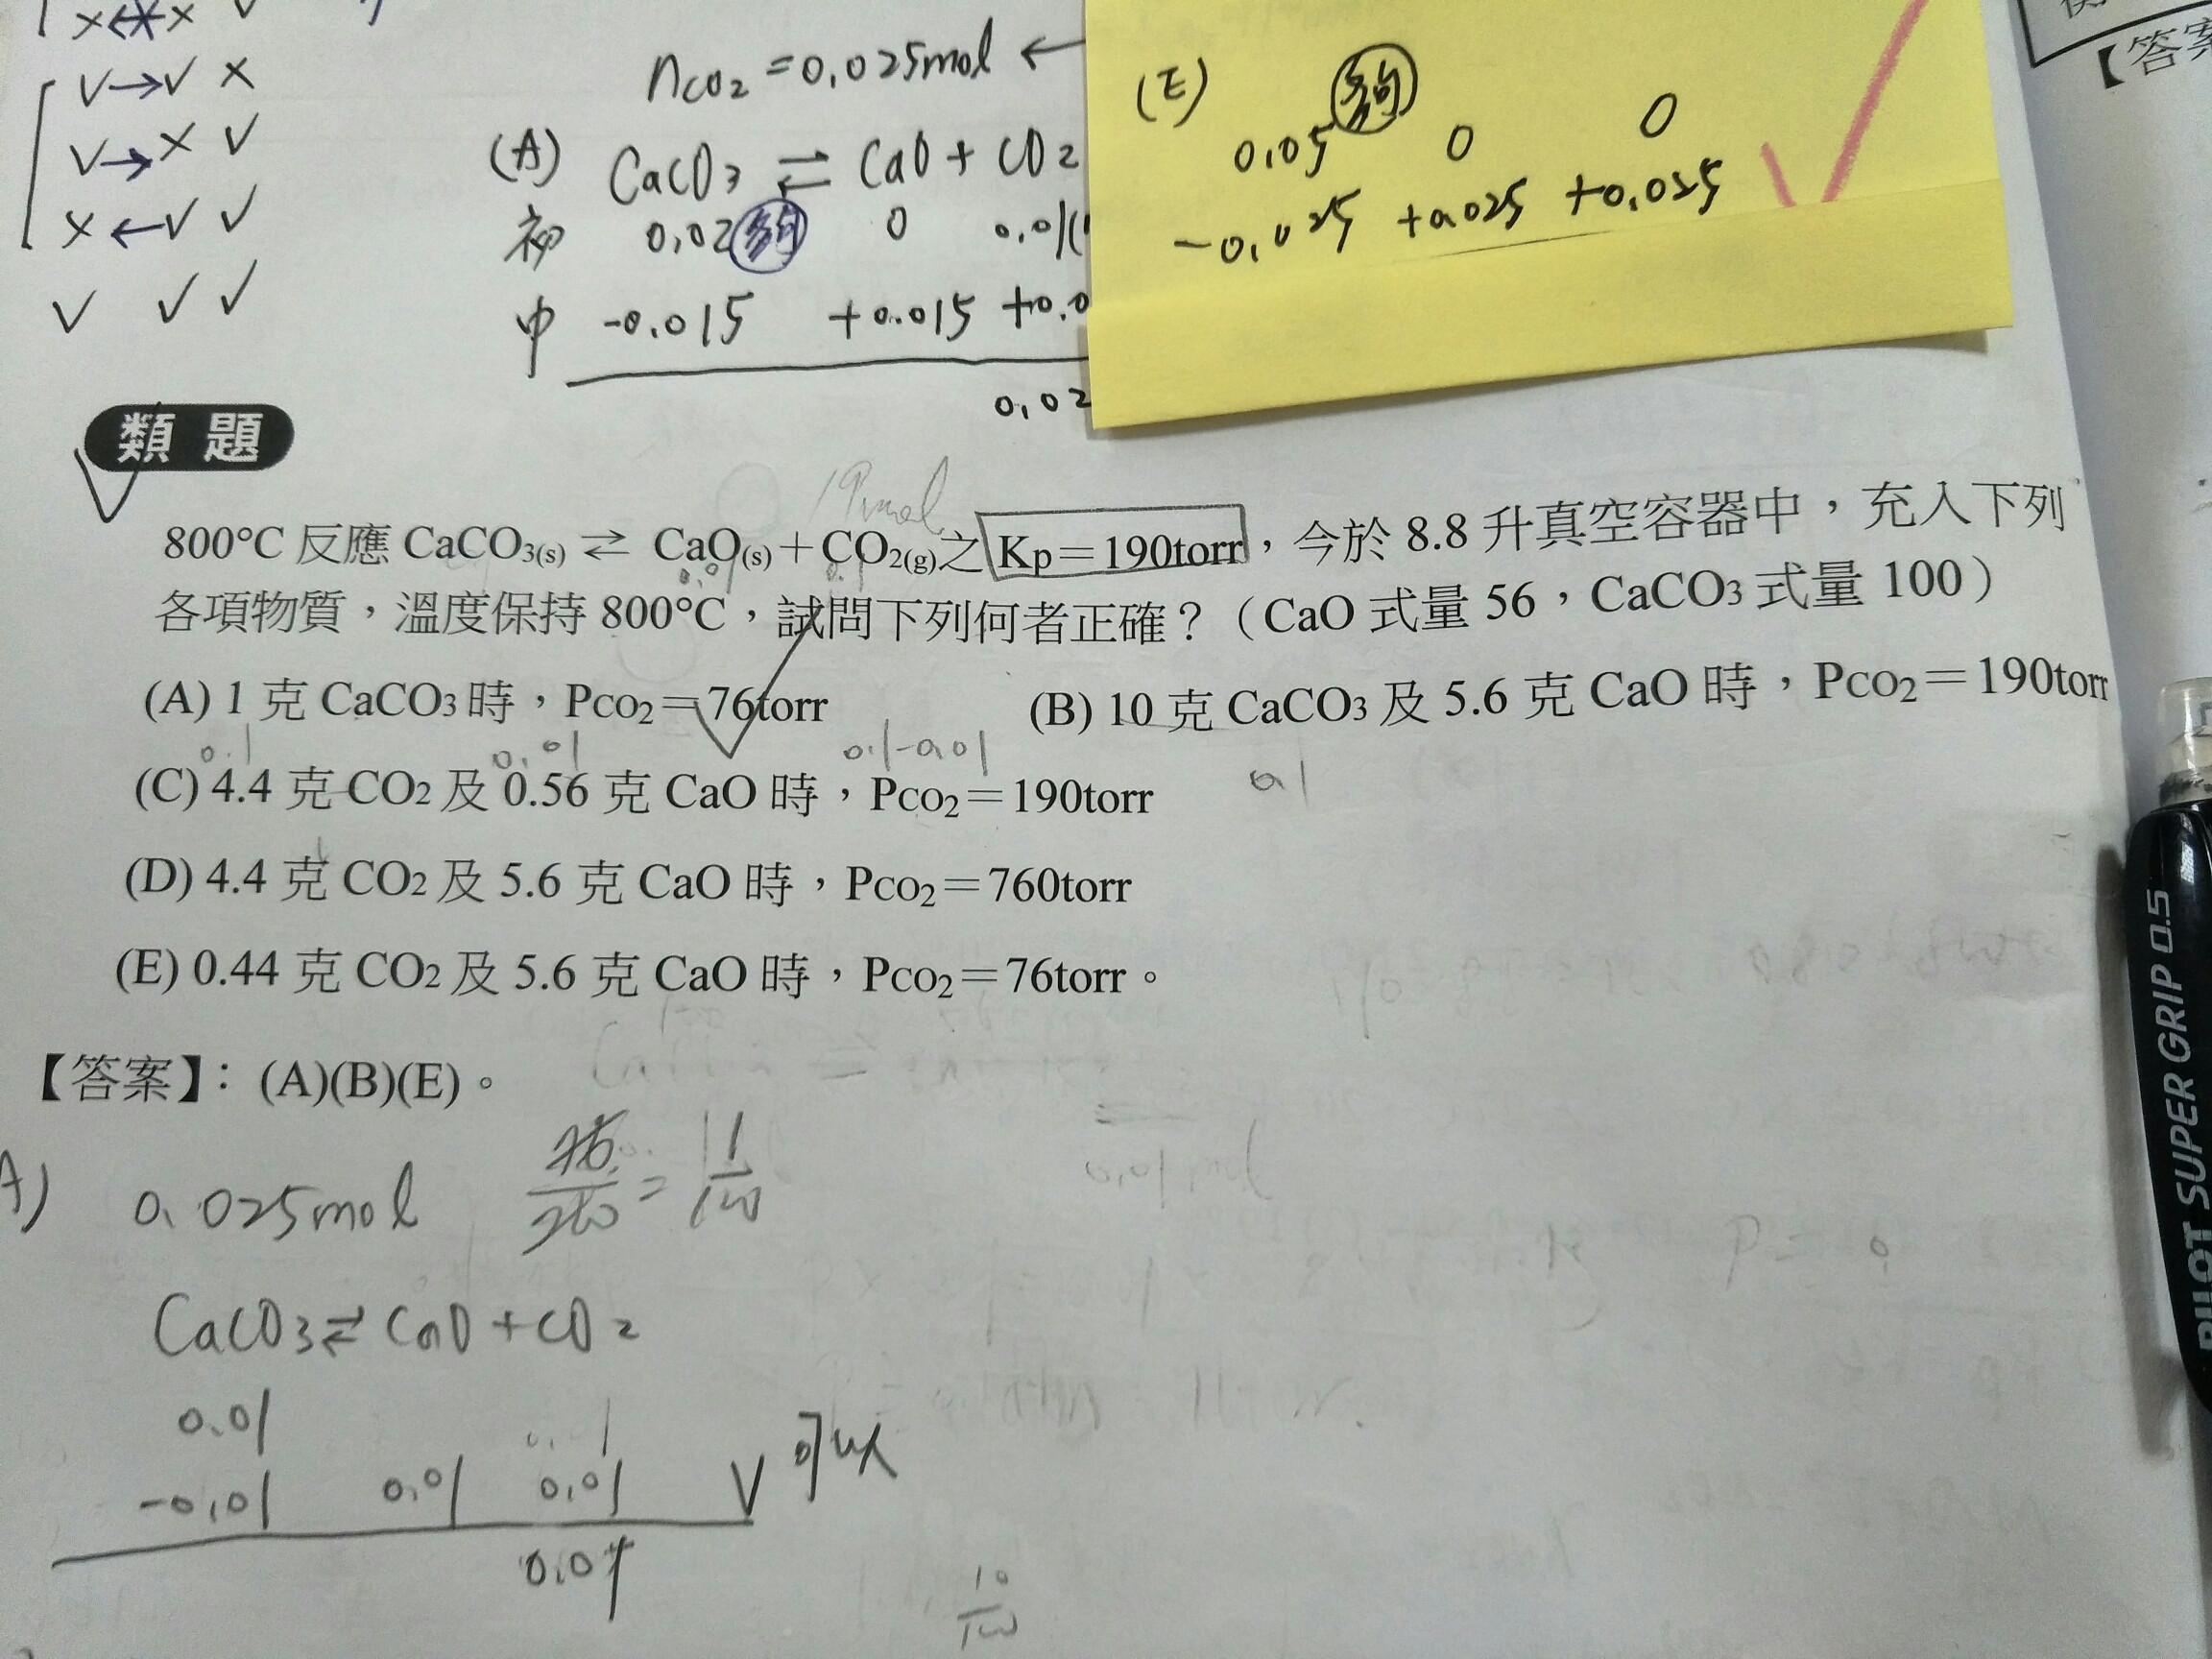 nCO2 = 0.025mol ←
(A) CaCO3 ⇌ CaO + CO2
初 0.02 夠 0 0.01
中 -0.015 +0.015 +0.0
0.02
(E)
0.05 夠 0 0
-0.025 +0.025 +0.025
【答案
類題
800°C 反應 CaCO3(s) ⇌ CaO(s)+CO2(g)之 Kp=190torr,今於 8.8 升真空容器中,充入下列
各項物質,溫度保持 800°C,試問下列何者正確?(CaO 式量 56,CaCO3 式量 100)
(A) 1 克 CaCO3 時,PCO2=76torr (B) 10 克 CaCO3 及 5.6 克 CaO 時,PCO2=190torr
0.1 0.01 0.1-0.01
(C) 4.4 克 CO2 及 0.56 克 CaO 時,PCO2=190torr
(D) 4.4 克 CO2 及 5.6 克 CaO 時,PCO2=760torr
(E) 0.44 克 CO2 及 5.6 克 CaO 時,PCO2=76torr。
【答案】:(A)(B)(E)。
A) 0.025mol
CaCO3 ⇌ CaO + CO2
0.01
-0.01 0.01 0.01 V 可以
10/100
PILOT SUPER GRIP 0.5